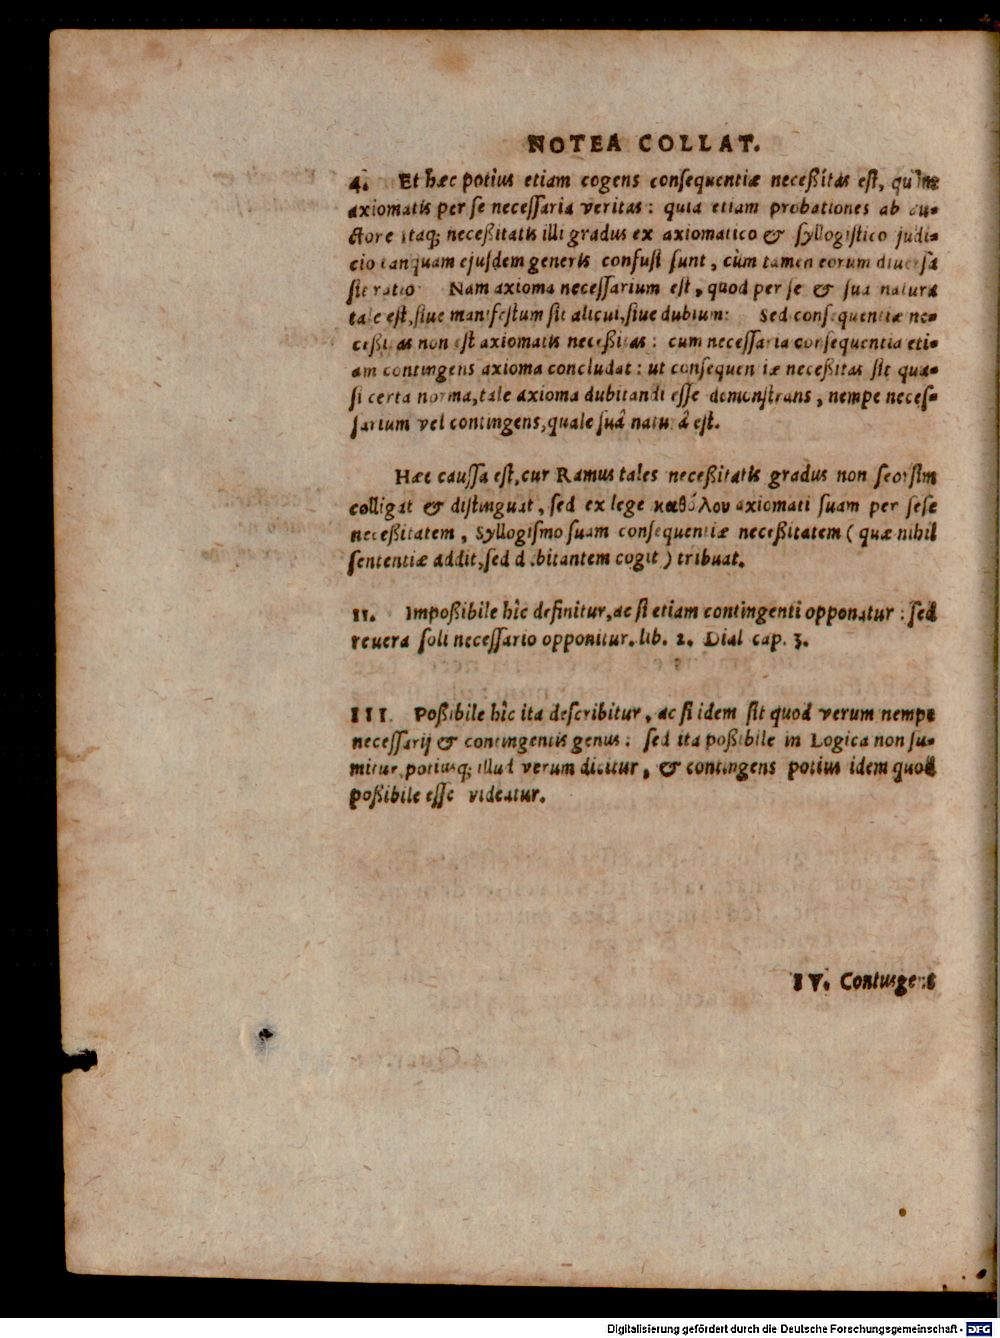 NOTEA COLLAT.
4. Et hæc potius etiam cogens conſequentiæ neceßitas eſt, quàm
axiomatis per ſe neceſſaria veritas: quia etiam probationes ab au-
ctore itaq; neceßitatis illi gradus ex axiomatico & ſyllogiſtico judi-
cio tanquam ejuſdem generis confuſi ſunt, cùm tamen eorum diuerſa
ſit ratio. Nam axioma neceſſarium eſt, quod per ſe & ſua natura
tale eſt, ſiue manifeſtum ſit alicui, ſiue dubium: Sed conſequentiæ ne-
ceßitas non eſt axiomatis neceßitas: cum neceſſaria conſequentia eti-
am contingens axioma concludat: ut conſequentiæ neceßitas ſit qua-
ſi certa norma, tale axioma dubitandi eſſe demonſtrans, nempe neceſ-
ſarium vel contingens, quale ſuâ naturâ eſt.
Hæc cauſſa eſt, cur Ramus tales neceßitatis gradus non ſeorſim
colligat & diſtinguat, ſed ex lege καθόλου axiomati ſuam per ſeſe
neceßitatem, Syllogiſmo ſuam conſequentiæ neceßitatem (quæ nihil
ſententiæ addit, ſed dubitantem cogit) tribuat.
II. Impoßibile hîc definitur, ac ſi etiam contingenti opponatur: ſed
reuera ſoli neceſſario opponitur. lib. 2. Dial cap. 3.
III. Poßibile hîc ita deſcribitur, ac ſi idem ſit quod verum nempe
neceſſarij & contingentis genus: ſed ita poßibile in Logica non ſu-
mitur, potiusq; illud verum dicitur, & contingens potius idem quod
poßibile eſſe videatur.
IV. Contingens
Digitalisierung gefördert durch die Deutsche Forschungsgemeinschaft - DFG